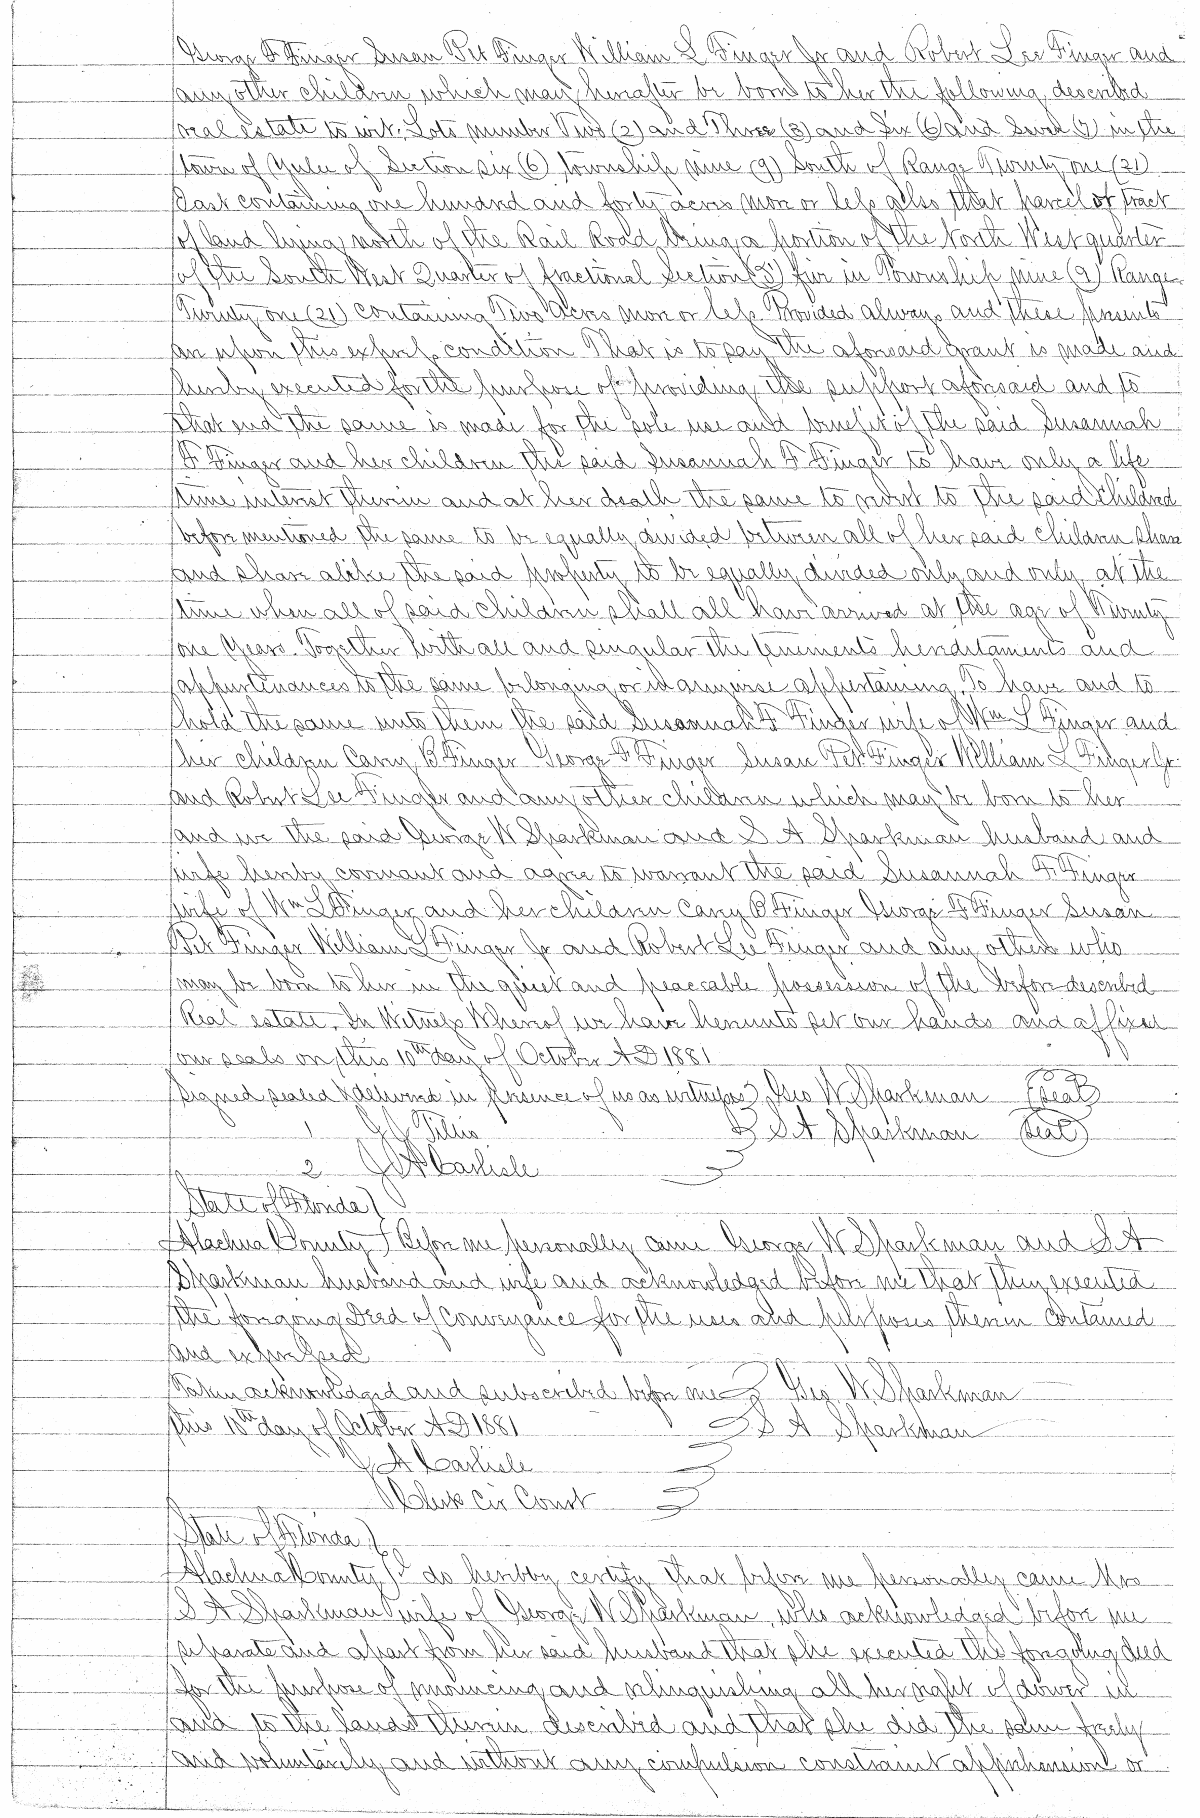 George F Finger Susan Pet Finger William L Finger Jr and Robert Lee Finger and
any other children which may hereafter be born to her the following described
real estate to wit: Lots number Two (2) and Three (3) and Six (6) and Seven (7) in the
town of Yulee of Section six (6) township nine (9) South of Range Twenty one (21)
East containing one hundred and forty acres more or less also that parcel or tract
of land lying north of the Rail Road being a portion of the North West quarter
of the South West Quarter of fractional Section (5) five in Township nine (9) Range
Twenty one (21) containing Two Acres more or less Provided always and these presents
are upon this express condition That is to say the aforesaid grant is made and
hereby executed for the purpose of providing the support aforesaid and to
that end the same is made for the sole use and benefit of the said Susannah
F Finger and her children the said Susannah F Finger to have only a life
time interest therein and at her death the same to revert to the said children
before mentioned the same to be equally divided between all of her said children share
and share alike the said property to be equally divided only and only at the
time when all of said children shall all have arrived at the age of Twenty
one Years. Together with all and singular the tenements hereditaments and
appurtenances to the same belonging or in anywise appertaining. To have and to
hold the same unto them the said Susannah F Finger wife of Wm L Finger and
her children Carry B Finger George F Finger Susan Pet Finger William L Finger Jr.
and Robert Lee Finger and any other children which may be born to her
and we the said George W Sparkman and S A Sparkman husband and
wife hereby covenant and agree to warrant the said Susannah F Finger
wife of Wm L Finger and her children Carry B Finger George F Finger Susan
Pet Finger William L Finger Jr and Robert Lee Finger and any others who
may be born to her in the quiet and peaceable possession of the before described
Real estate. In Witness Whereof we have hereunto set our hands and affixed
our seals on this 10th day of October AD 1881
Signed sealed & delivered in presence of us as witness Geo W Sparkman (Seal)
1 S A Sparkman (Seal)
2 J A Carlisle
State of Florida
Alachua County Before me personally came George W Sparkman and S A
Sparkman husband and wife and acknowledged before me that they executed
the foregoing Deed of Conveyance for the uses and purposes therein contained
and expressed
Taken acknowledged and subscribed before me Geo W. Sparkman
this 10th day of October AD 1881 S A Sparkman
J A Carlisle
Clerk Cir Court
State of Florida
Alachua County I do hereby certify that before me personally came Mrs
S A Sparkman wife of George W Sparkman, who acknowledged before me
separate and apart from her said husband that she executed the foregoing deed
for the purpose of renouncing and relinquishing all her right of dower in
and to the lands therein described and that she did the same freely
and voluntarily and without any compulsion constraint apprehension or